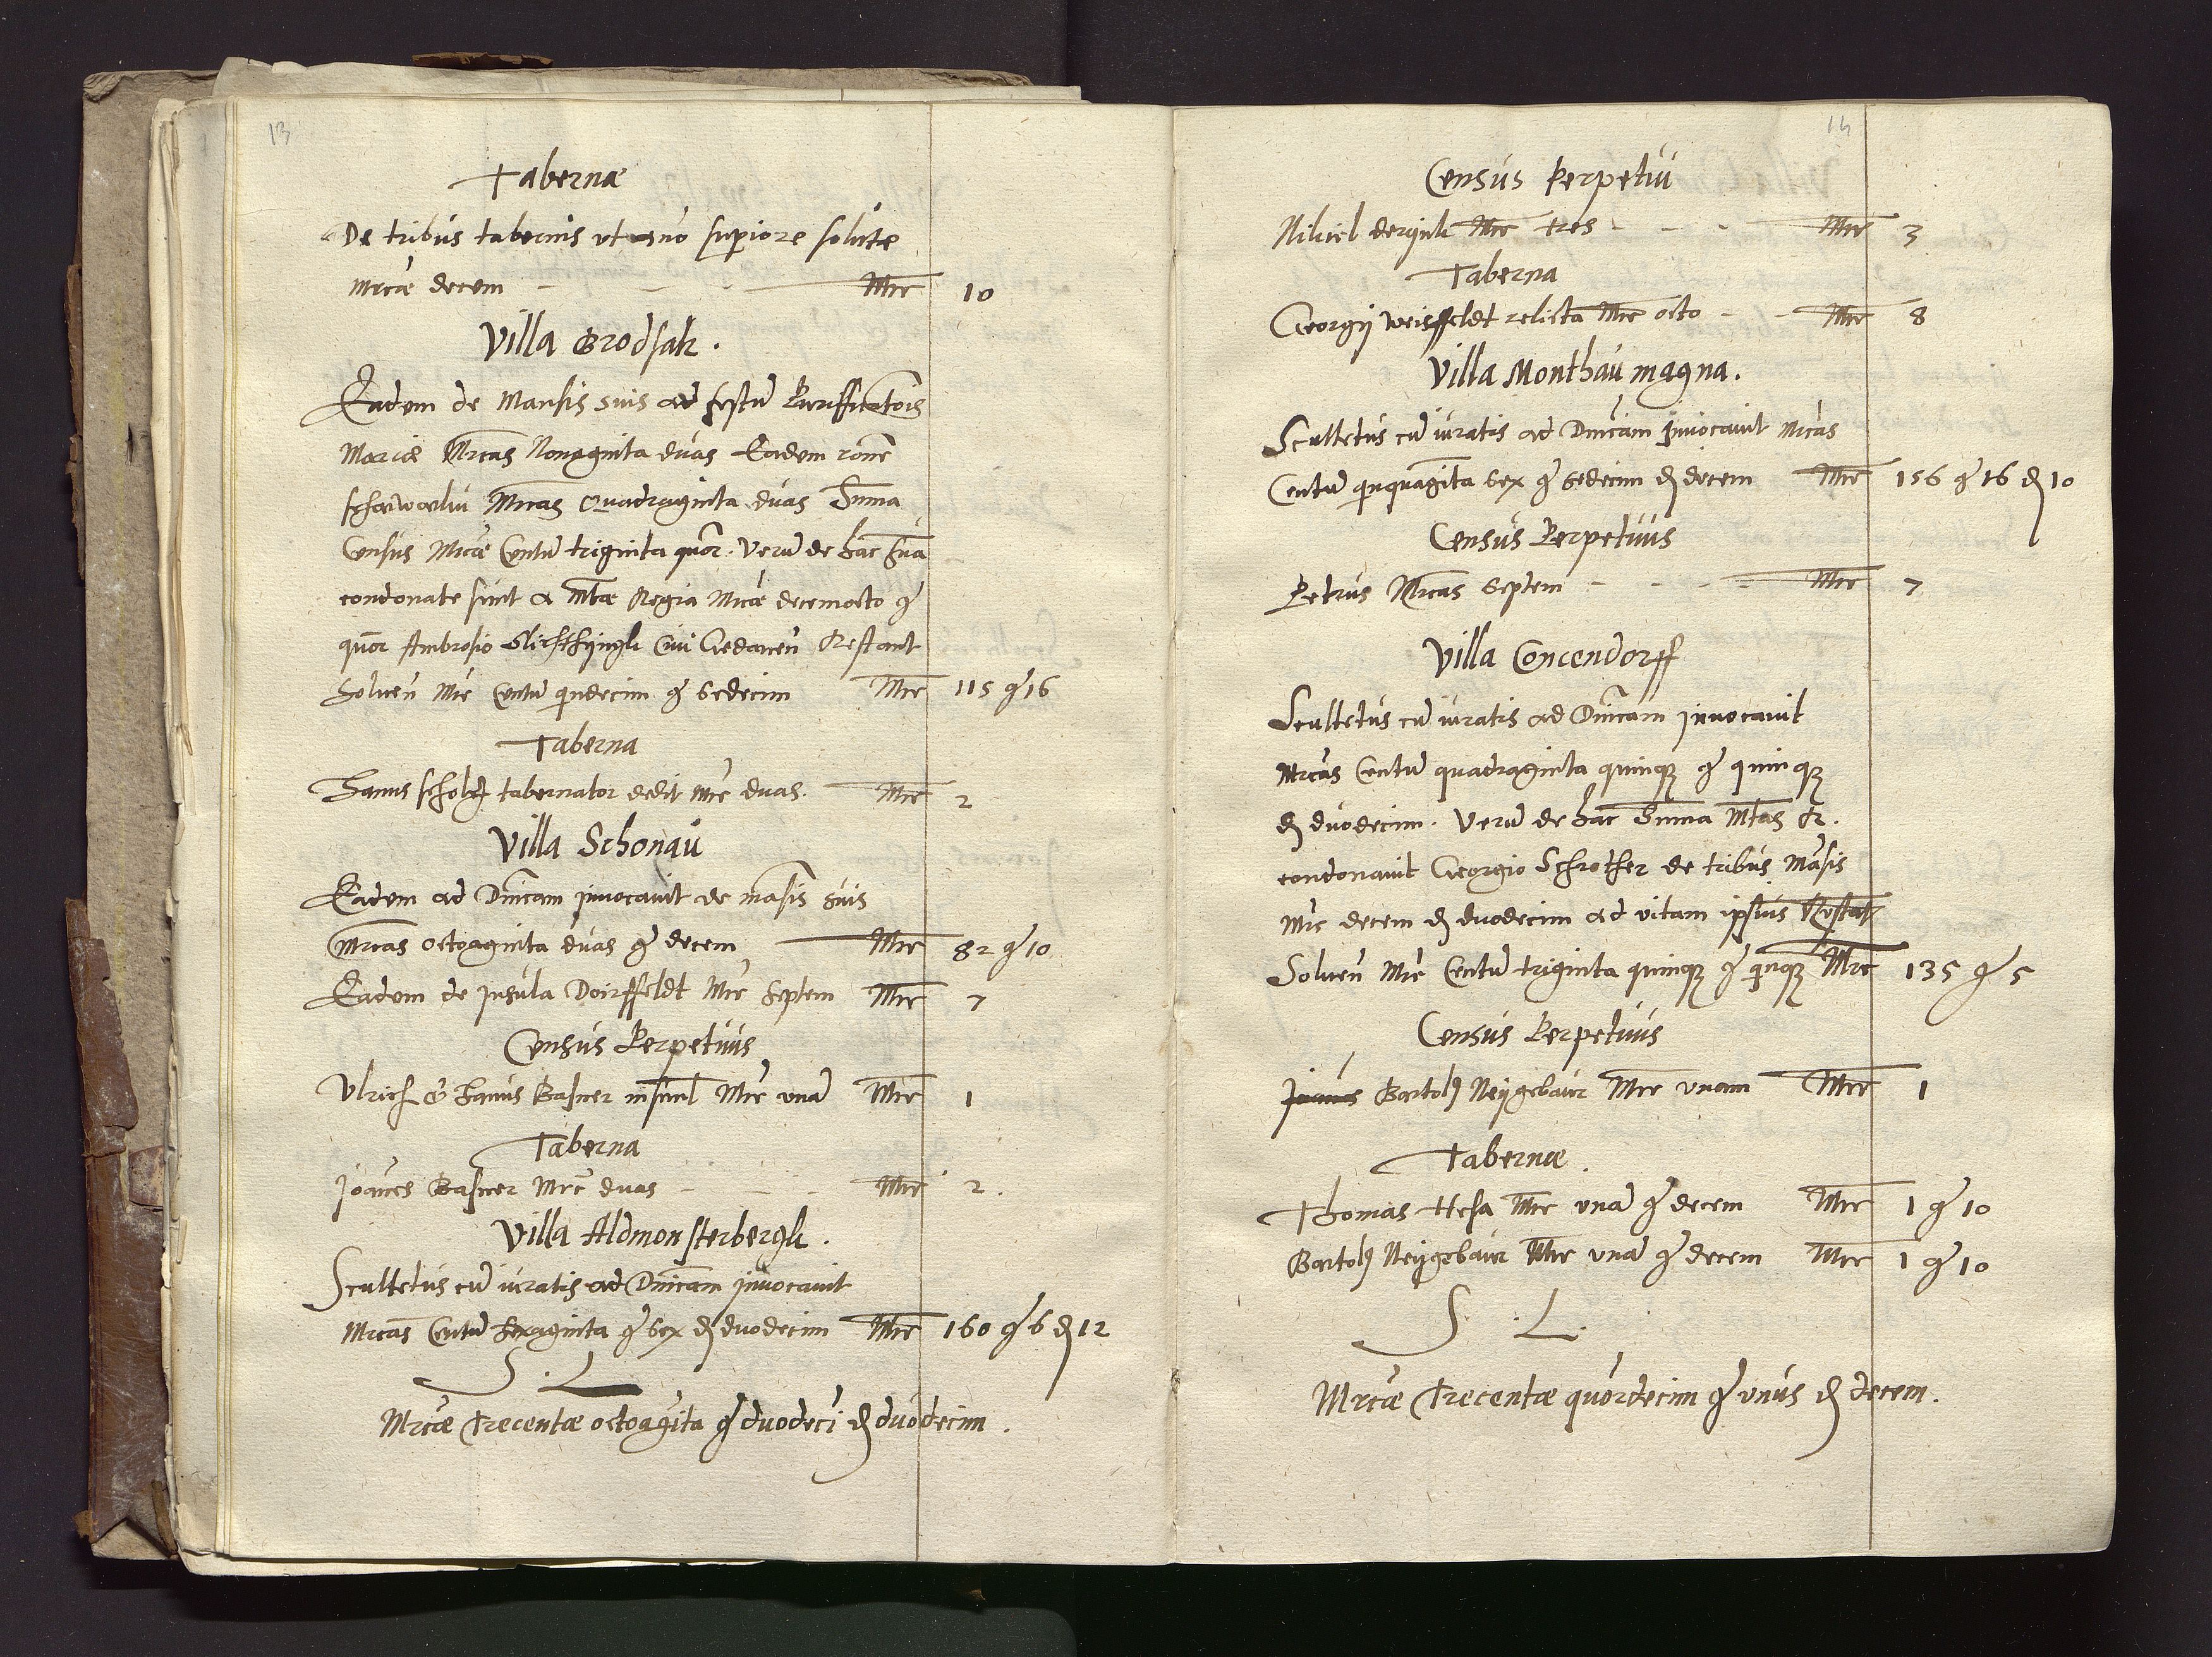 13
Tabernæ
De tribus tabernis ut año supiore solutæ
Mrcæ decem - - - Mrc 10
Villa Brodsak.
Eadem de Mansis suis ad festũ Puriffcatõis
Mariæ Mrcas Nonaginta duas Eadem rõne
scharwarkũ Mrcas Quadraginta duas Suma
Census Mrcæ Centũ triginta quõr. Verũ de hac Sũa
condonate sunt a Mtæ Regia Mrcæ decemocto gͦ
quõr Ambrosio Civi Gedaneñ Restant
Solueñ Mrc Centũ quindecim gͦ Sedecim Mrc 115 gͦ 16
Taberna
Hanus scholtz tabernator dedit Mrc duas. Mrc 2
Villa Schonau
Eadem ad Dnicam Invocavit de mãsis suis
Mrcas octoaginta duas gͦ decem Mrc 82 gͦ 10
Eadem de Insula Doirffeldt Mrc Septem Mrc 7
Census Perpetuus
Ulrich & Hanus Basner insiml Mrc unã Mrc 1
Taberna
Joãnes Basner Mrc duas - - - Mrc 2.
Villa Aldmonsterbergk.
Scultetus cũ iuratis ad Dnicam Invocavit
Mrcas Centũ Sexaginta gͦ Sex ₰ duodecim Mrc 160 gͦ 6 ₰ 12
S. L
Mrcæ Trecentæ octoagĩta gͦ duodecĩ ₰ duodecim.
14
Census Perpetui
Nikiel Mrc tres - - - Mrc 3
Taberna
Georgij Weisffeldt relicta Mrc octo - - Mrc 8
Villa Monthau magna.
Scultetus cũ iuratis ad Dnicam Invocavit Mrcas
Centũ quinquagĩta Sex gͦ Sedecim ₰ decem Mrc 156 gͦ 16 ₰ 10
Census Perpetuus
Petrus Mrcas Septem - - - Mrc 7
Villa Concendorff
Scultetus cũ iuratis ad Dnicam invocavit
Mrcas Centũ quadraginta quinqꝫ gͦ quinqꝫ
₰ duodecim. Verũ de hac Suma Mtas R.
condonavit Georgio Schrother de tribus Mãsis
Mrc decem ₰ duodecim ad vitam ipsius Restat
Solueñ Mrc Centũ triginta quinqꝫ gͦ qinqꝫ Mrc 135 gͦ 5
Census Perpetuus
Bartolꝭ Neygebaur Mrc unam Mrc 1
Tabernæ.
Thomas Hesa Mrc unã gͦ decem Mrc 1 gͦ 10
Bartolꝭ Neygebaur Mrc unã gͦ decem Mrc 1 gͦ 10
S. L.
Mrcæ Trecentæ quõrdecim gͦ unus ₰ decem.